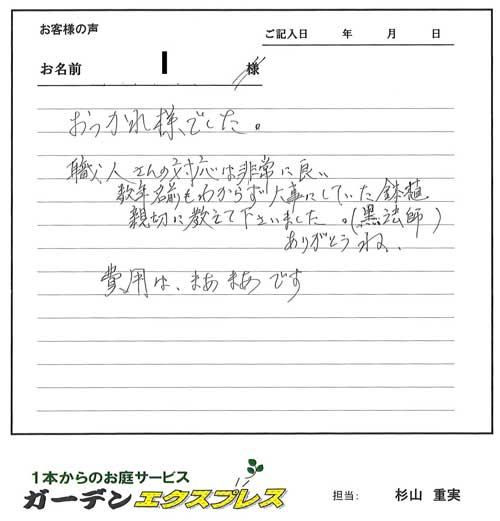 お客様の声
ご記入日 年 月 日
お名前 様
おつかれ様でした。
職人さんの対応は非常に良い
数年名前もわからず大事にしていた鉢植
親切に教えて下さいました。(黒法師)
ありがとうね、
費用は、まあまあです
1本からのお庭サービス
ガーデンエクスプレス
担当: 杉山 重実